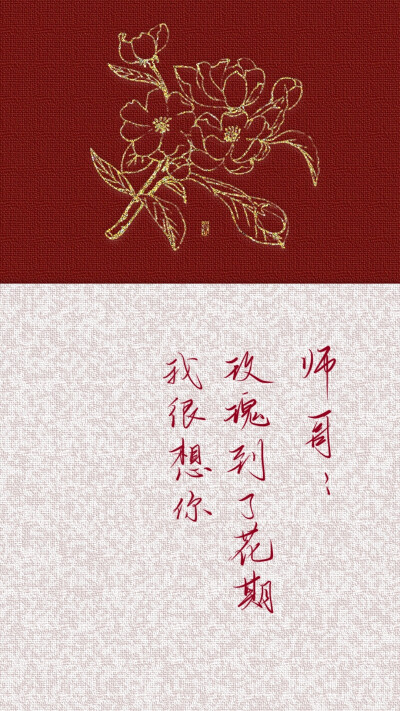 师哥：
玫瑰到了花期
我很想你